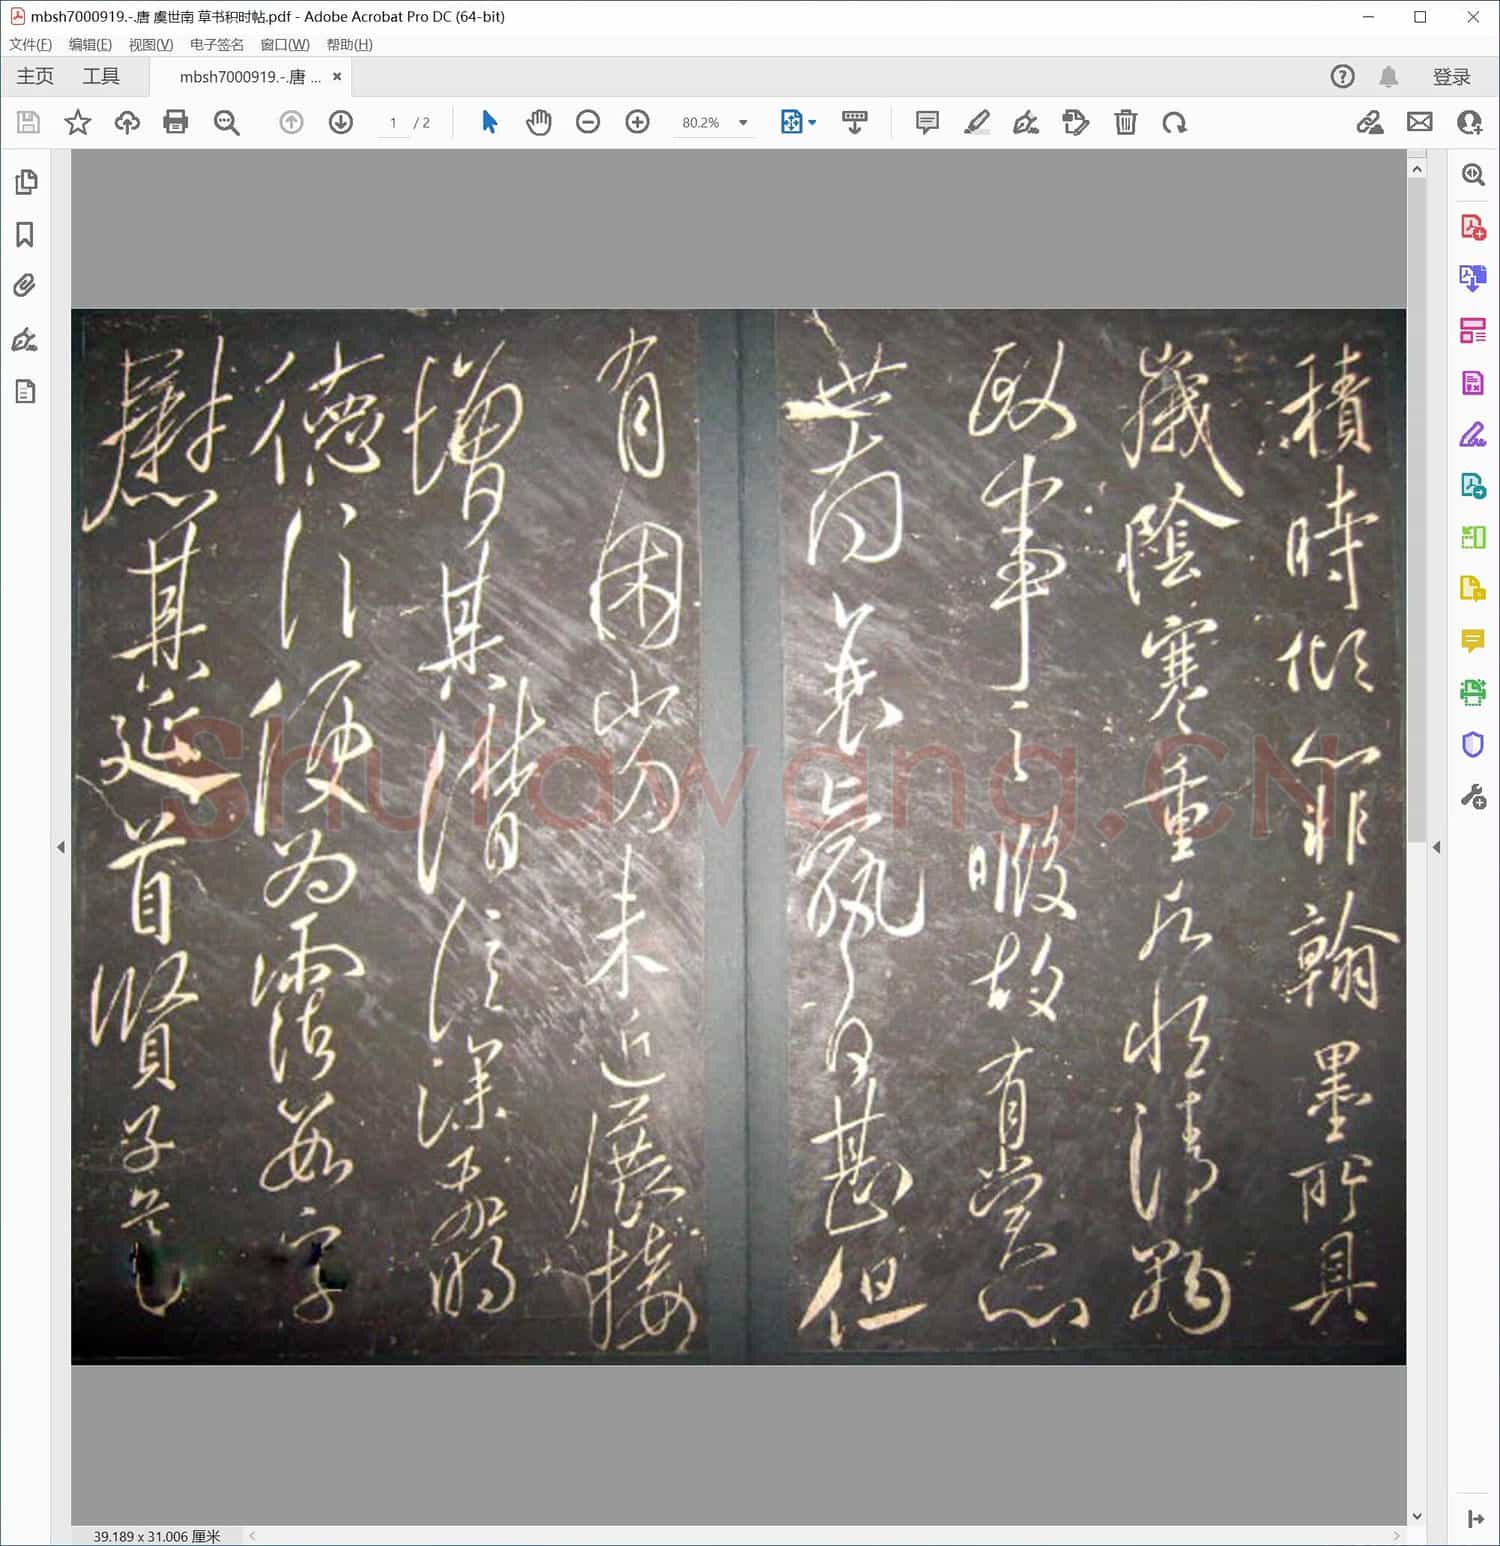 mbsh7000919.-.唐 虞世南 草书积时帖.pdf - Adobe Acrobat Pro DC (64-bit)
文件(F) 编辑(E) 视图(V) 电子签名 窗口(W) 帮助(H)
主页 工具 mbsh7000919.-.唐 ... × 登录
1 / 2 80.2%
積時傾心非翰墨所具
歲陰寒重 清
事之暇故有賞心
世南 日甚但
有困劣未近展接
增其潛 深
德行便為霑 字
慰其延首賢子
Shufawang.CN
39.189 x 31.006 厘米